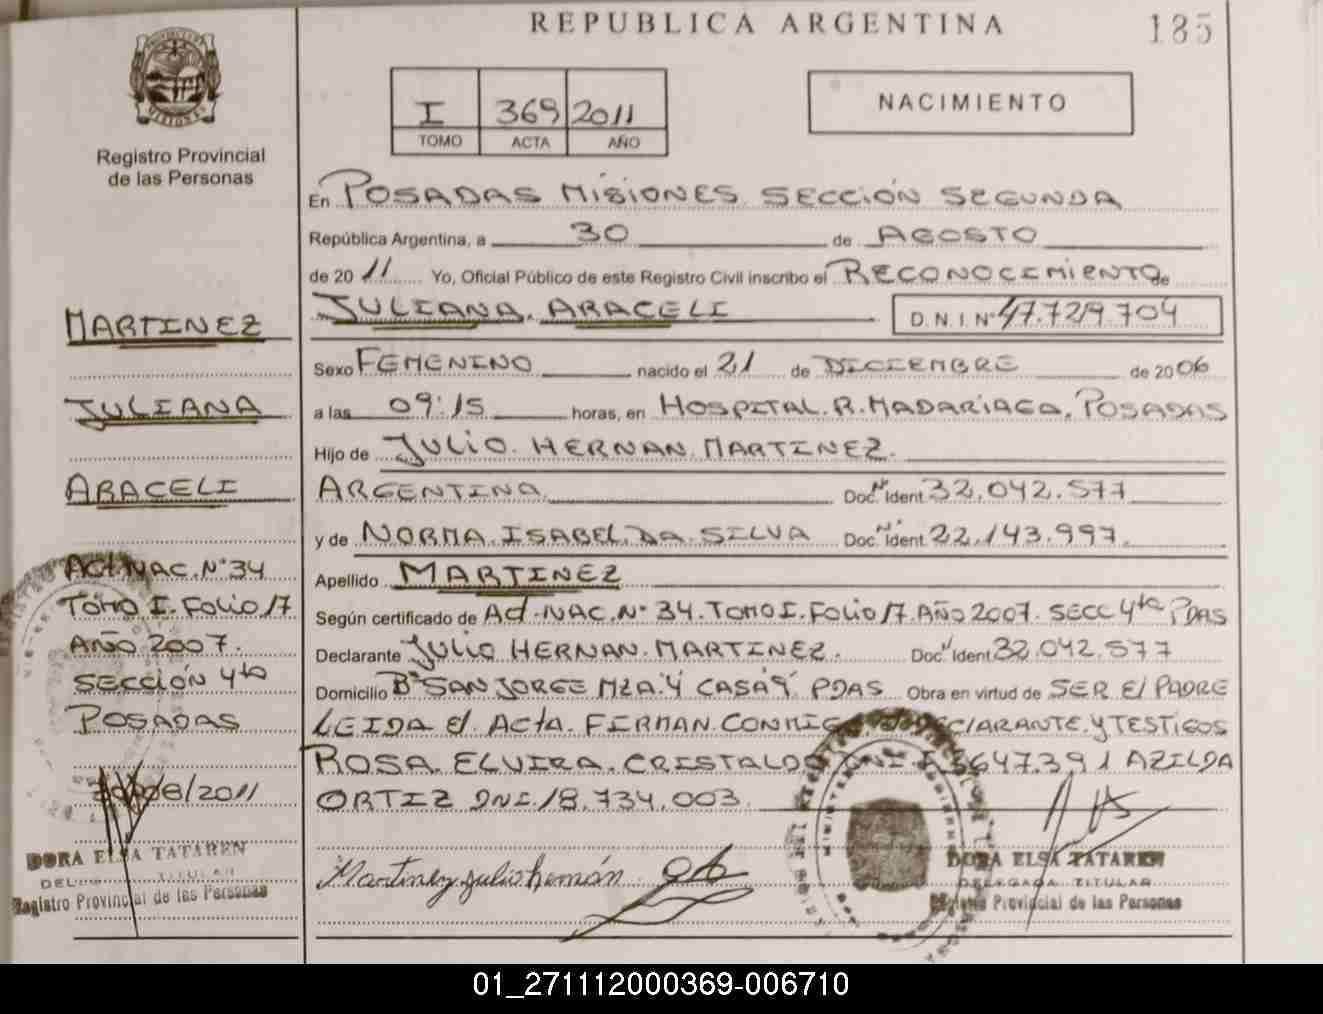 REPUBLICA ARGENTINA
185
Registro Provincial
de las Personas
I 369 2011
TOMO ACTA AÑO
NACIMIENTO
MARTINEZ
JULIANA
ARACELI
Act. NAC. Nº 34
TOMO I. FOLIO 17
AÑO 2007.
SECCIÓN 4ta
POSADAS
08/2011
DORA ELSA TATAREN
TITULAR
Registro Provincial de las Personas
En POSADAS MISIONES SECCIÓN SEGUNDA
República Argentina, a 30 de AGOSTO
de 20 11 Yo, Oficial Público de este Registro Civil inscribo el RECONOCIMIENTO de
JULIANA. ARACELI D.N.I. Nº 47.729.704
Sexo FEMENINO nacido el 21 de DICIEMBRE de 20 06
a las 09:15 horas, en HOSPITAL. R. MADARIAGA. POSADAS
Hijo de JULIO. HERNAN. MARTINEZ.
ARGENTINA Doc. Nº Ident. 32.042.577
y de NORMA. ISABEL. DA. SILVA Doc. Nº Ident. 22.143.997.
Apellido MARTINEZ
Según certificado de Act. NAC. Nº 34. TOMO I. FOLIO 17. AÑO 2007. SECC 4ta PDAS
Declarante JULIO HERNAN. MARTINEZ. Doc. Nº Ident. 32.042.577
Domicilio Bº SAN JORGE MZA. 4 CASA 9 PDAS Obra en virtud de SER El PADRE
LEIDA El ACtA. FIRMAN. CONMIGO DECLARANTE. y TESTIGOS
ROSA. ELVIRA. CRISTALDO 647.391 AZILDA
ORTIZ DNI. 18.734.003.
Martinez julio hernán
DORA ELSA TATAREN
DELEGADA TITULAR
Registro Provincial de las Personas
01_271112000369-006710